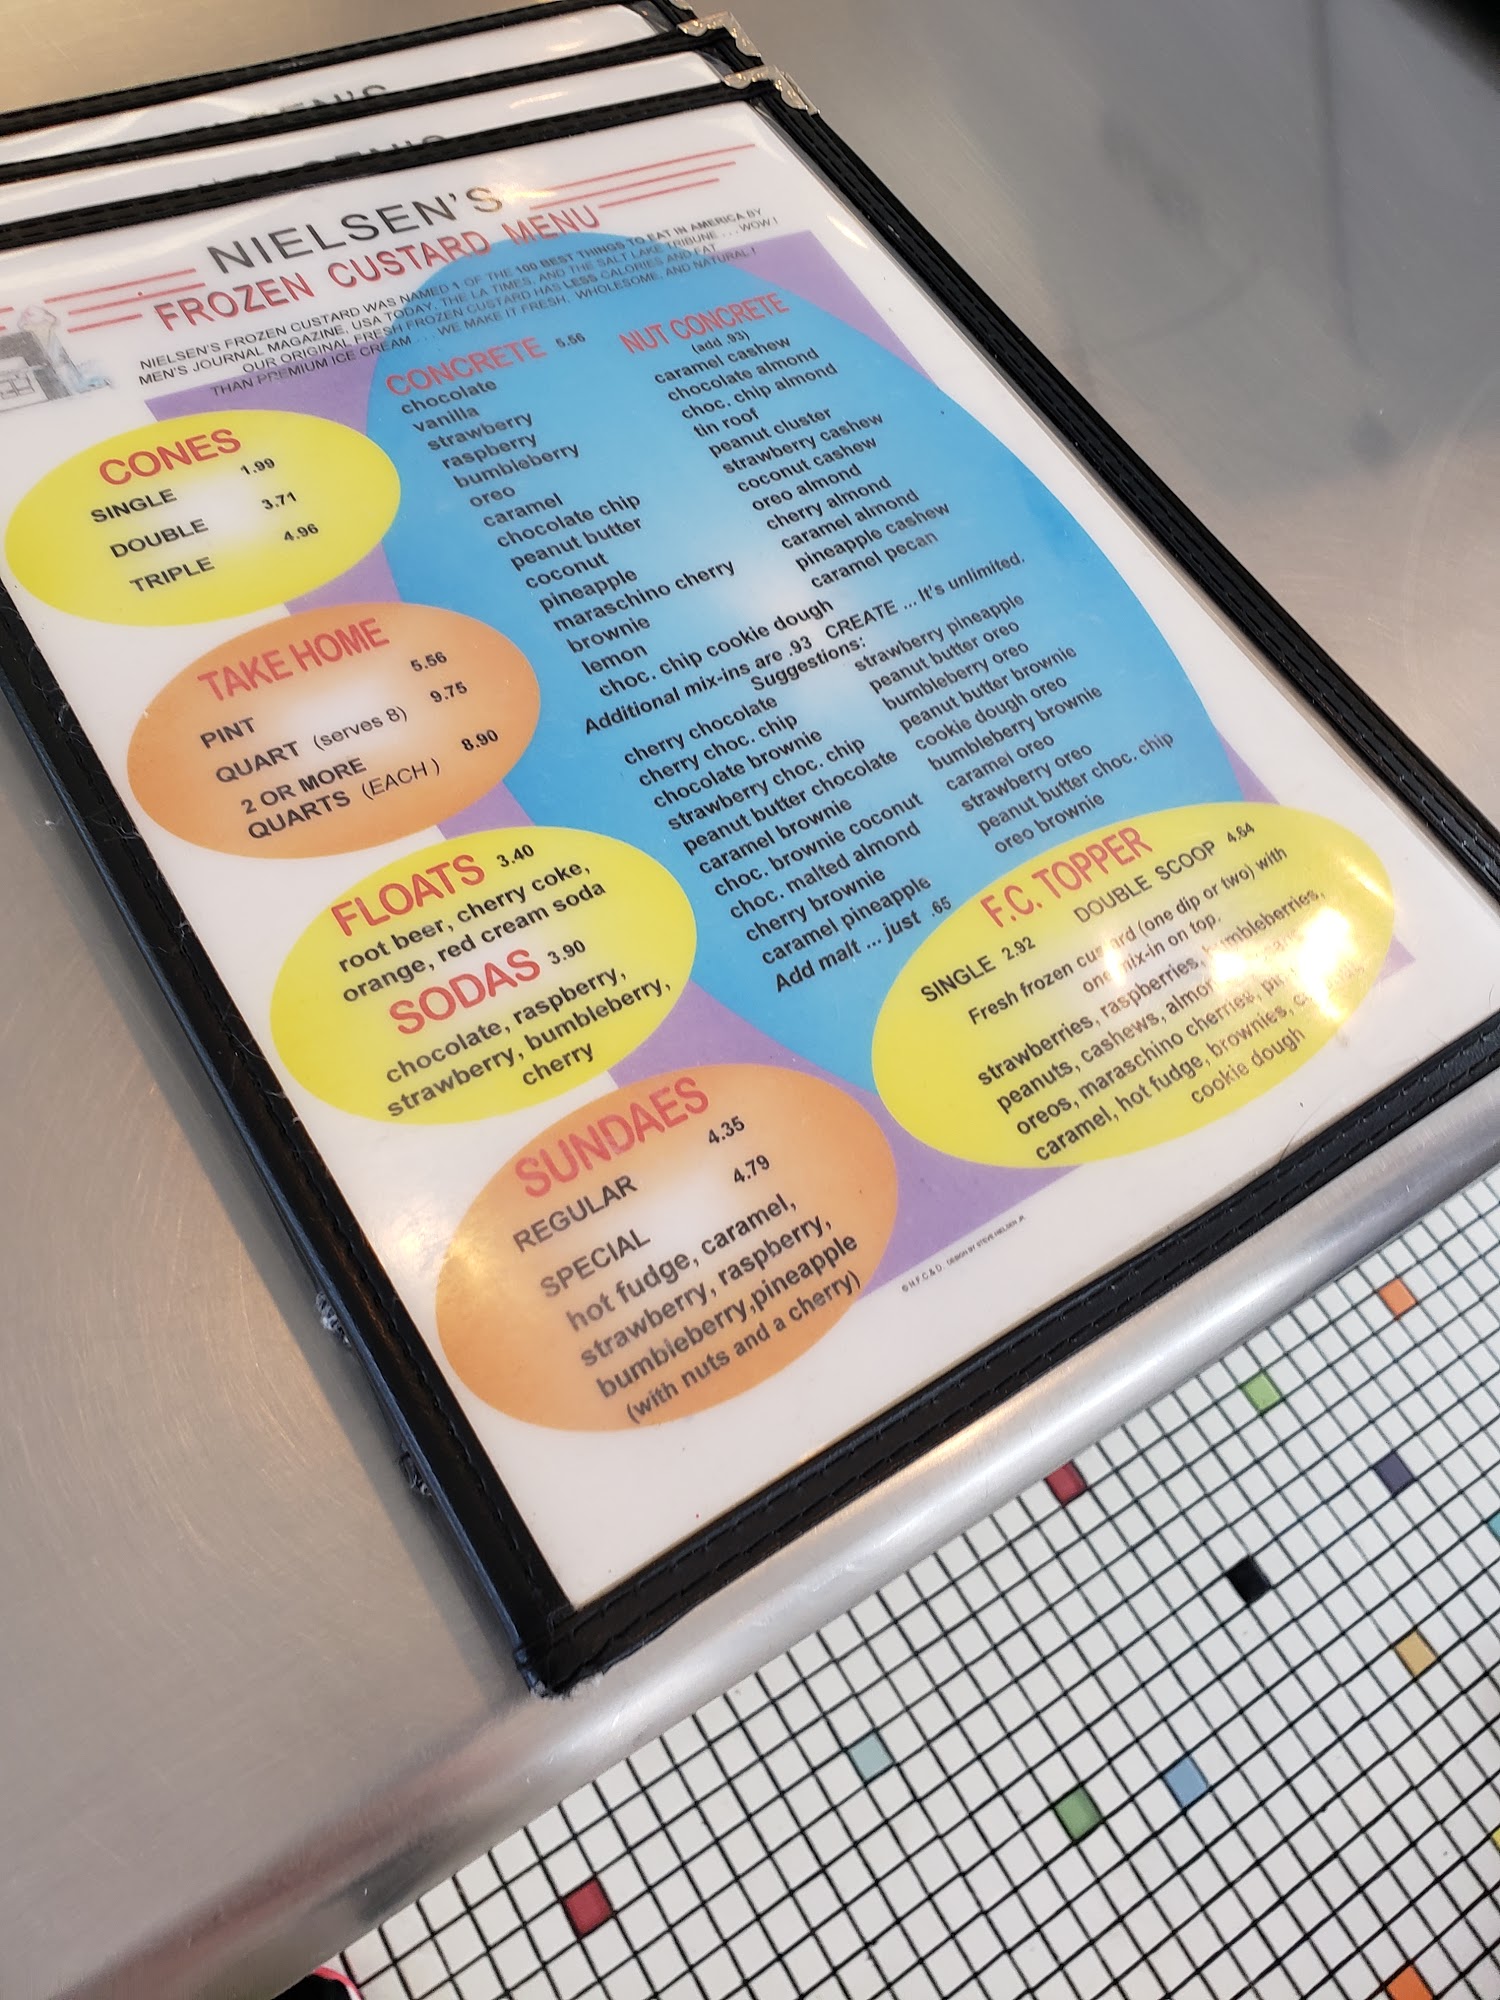 NIELSEN'S
FROZEN CUSTARD MENU
NIELSEN'S FROZEN CUSTARD WAS NAMED 1 OF THE 100 BEST THINGS TO EAT IN AMERICA BY
MEN'S JOURNAL MAGAZINE, USA TODAY, THE LA TIMES, AND THE SALT LAKE TRIBUNE . . . WOW!
OUR ORIGINAL FRESH FROZEN CUSTARD HAS LESS CALORIES AND FAT
THAN PREMIUM ICE CREAM . . . WE MAKE IT FRESH, WHOLESOME, AND NATURAL!
CONES
SINGLE 1.99
DOUBLE 3.71
TRIPLE 4.96
TAKE HOME
PINT 5.56
QUART (serves 8) 9.75
2 OR MORE
QUARTS (EACH) 8.90
FLOATS 3.40
root beer, cherry coke,
orange, red cream soda
SODAS 3.90
chocolate, raspberry,
strawberry, bumbleberry,
cherry
SUNDAES
REGULAR 4.35
SPECIAL 4.79
hot fudge, caramel,
strawberry, raspberry,
bumbleberry,pineapple
(with nuts and a cherry)
CONCRETE 5.56
chocolate
vanilla
strawberry
raspberry
bumbleberry
oreo
caramel
chocolate chip
peanut butter
coconut
pineapple
maraschino cherry
brownie
lemon
choc. chip cookie dough
NUT CONCRETE
(add .93)
caramel cashew
chocolate almond
choc. chip almond
tin roof
peanut cluster
strawberry cashew
coconut cashew
oreo almond
cherry almond
caramel almond
pineapple cashew
caramel pecan
Additional mix-ins are .93 CREATE ... It's unlimited.
Suggestions:
cherry chocolate
cherry choc. chip
chocolate brownie
strawberry choc. chip
peanut butter chocolate
caramel brownie
choc. brownie coconut
choc. malted almond
cherry brownie
caramel pineapple
Add malt ... just .65
strawberry pineapple
peanut butter oreo
bumbleberry oreo
peanut butter brownie
cookie dough oreo
bumbleberry brownie
caramel oreo
strawberry oreo
peanut butter choc. chip
oreo brownie
F.C. TOPPER
SINGLE 2.92 DOUBLE SCOOP 4.64
Fresh frozen custard (one dip or two) with
one mix-in on top.
strawberries, raspberries, bumbleberries,
peanuts, cashews,
oreos, maraschino cherries,
caramel, hot fudge, brownies,
cookie dough
© N.F.C. & D. DESIGN BY STEVE NIELSEN JR.